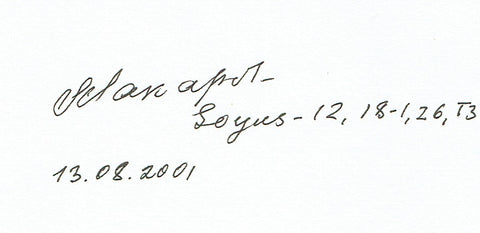 ОМакаров
Soyus-12, 18-1, 26, T3
13.08.2001